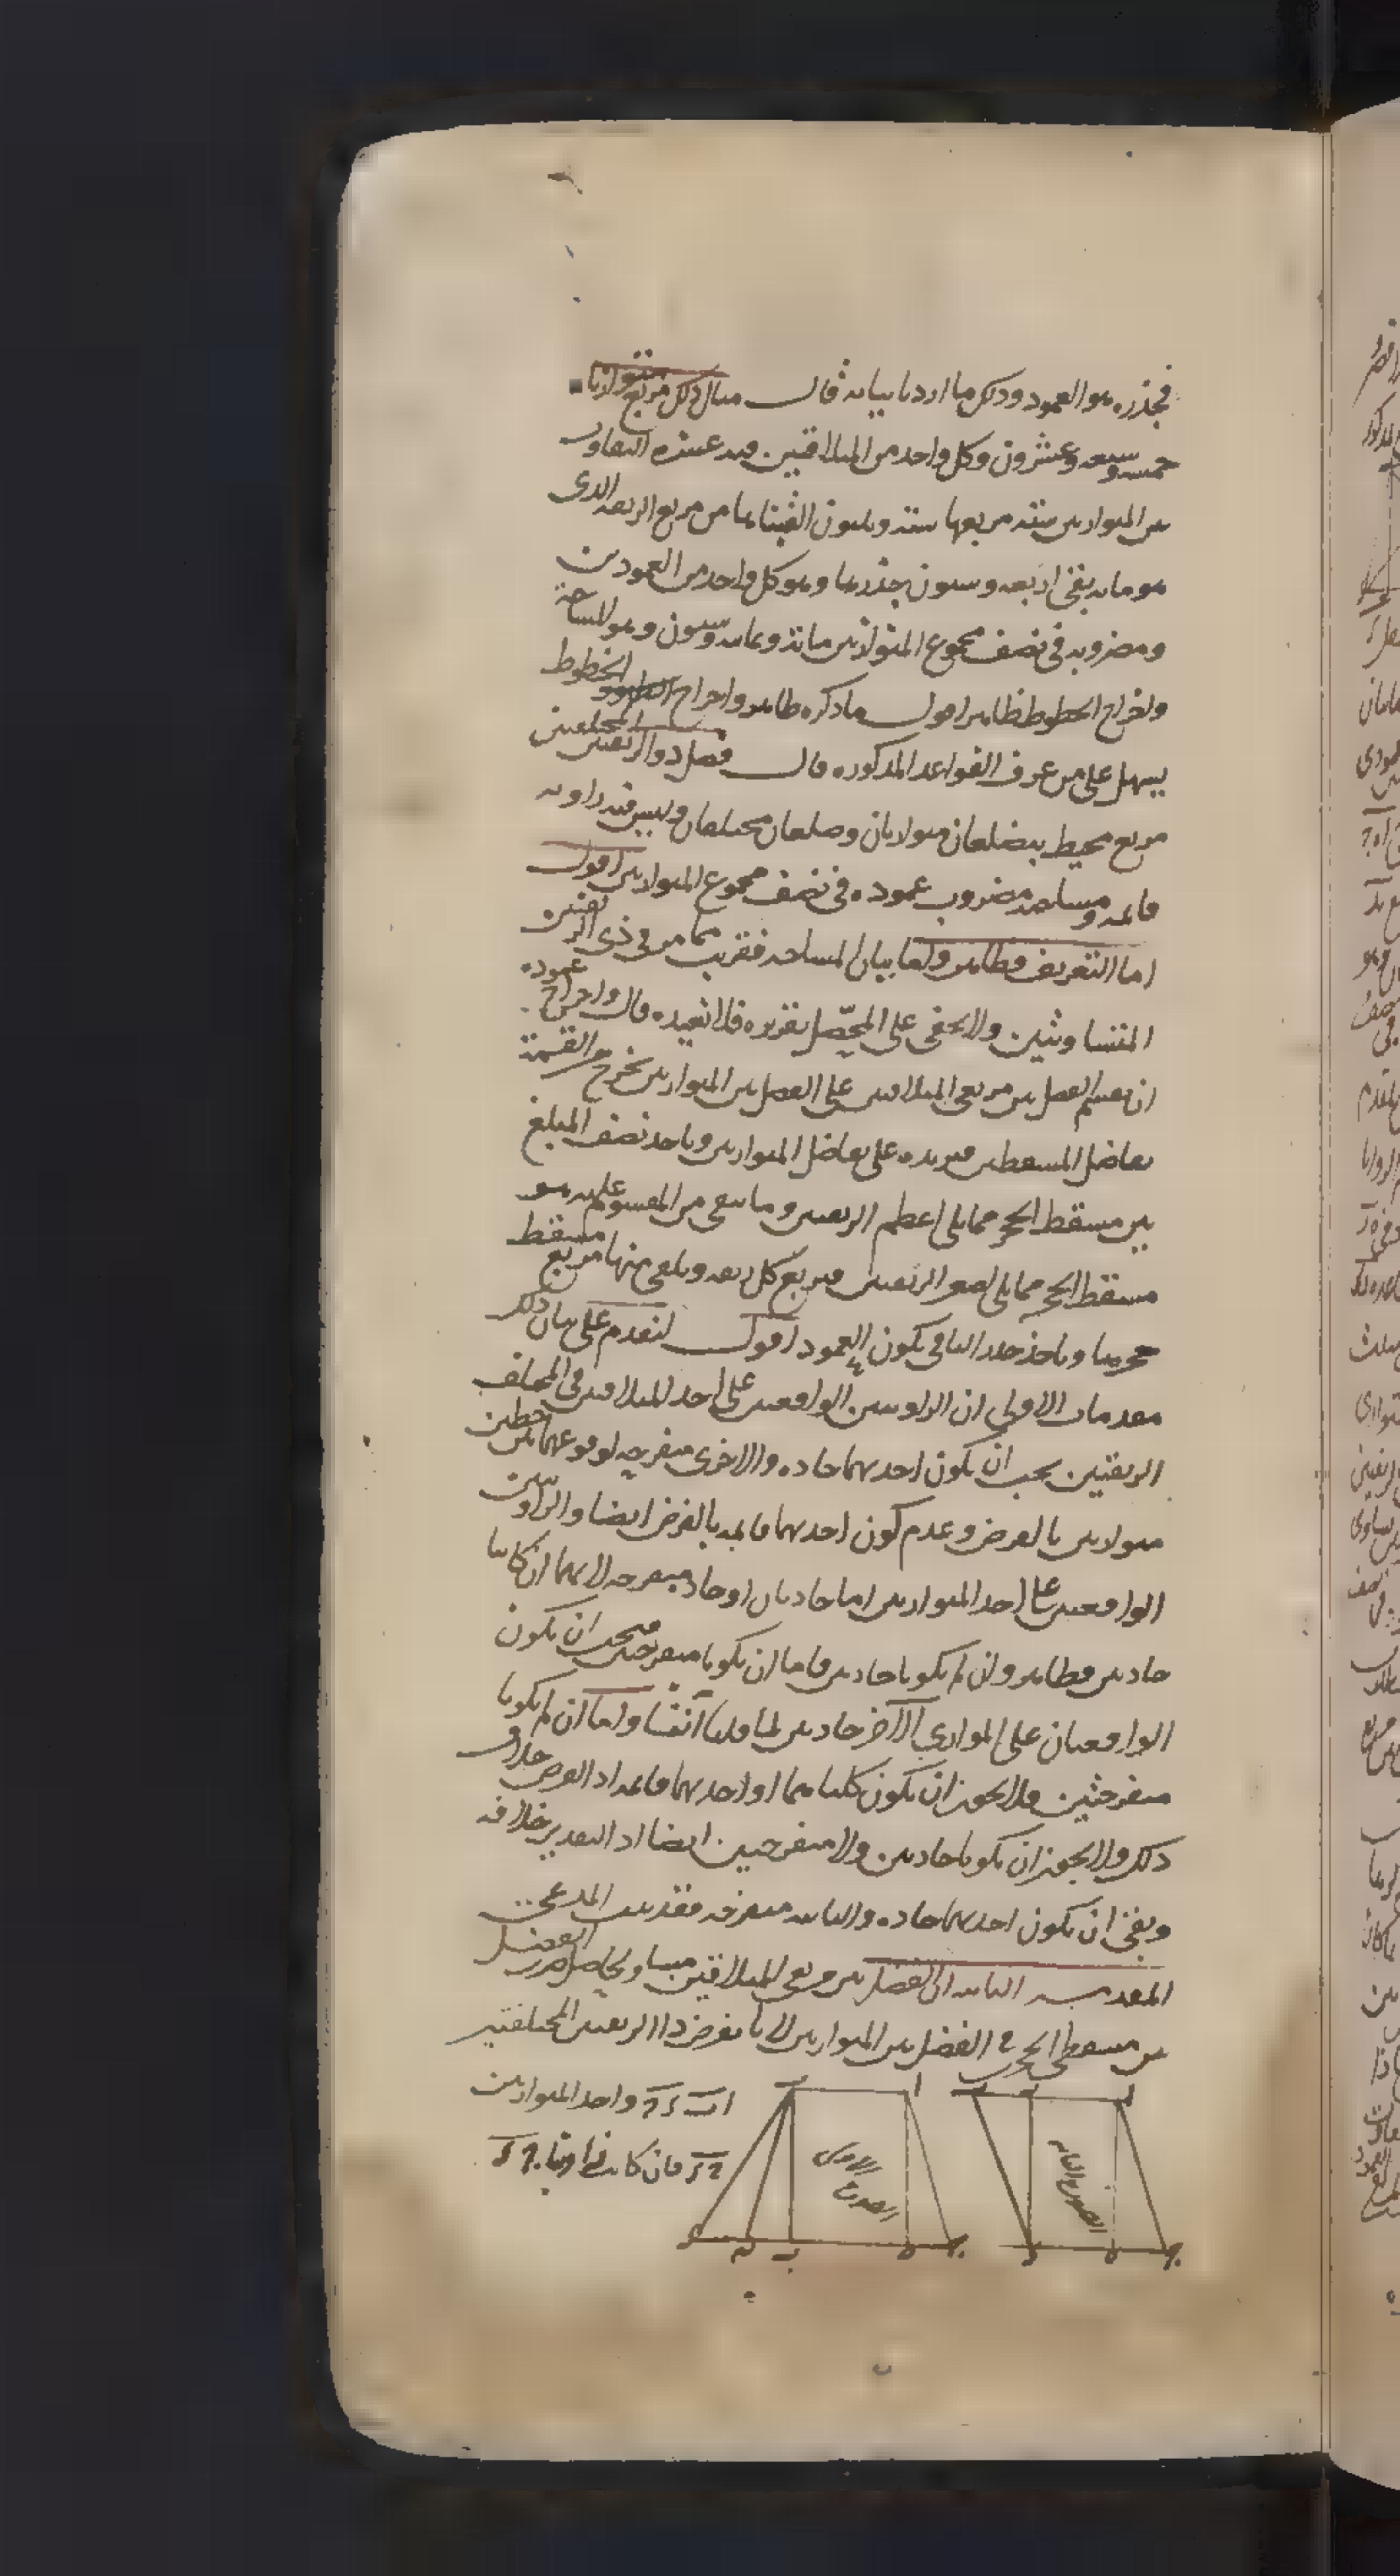 فجذره هو العمود وذلك ما اردنا بيانه قال مثال ذلك مربع متوازيا
خمسه وسبعه وعشرون وكل واحد من المتلاقيين فيه عشره التفاوت
بين المتوازيين ستة مربعها ستة وثلثون القيناها من مربع الربعه الذى
هو مائه بقى اربعه وستون جذرها وهو كل واحد من العمودين
ومضروبه فى نصف مجموع المتوازيين مائة وثمانيه وستون وهو المساحة
واخراج الخطوط ظاهر اقول ما ذكره ظاهر واخراج الخطوط
يسهل على من عرف القواعد المذكوره قال فصل ذو الربعتين المختلفتين
مربع محيط به ضلعان متوازيان وضلعان مختلفان وليس فيه زاويه
قائمه ومساحته مضروب عموده فى نصف مجموع المتوازيين اقول
اما التعريف فظاهر واما بيان المساحه فقريب مما مر فى ذى الربعتين
المتساويتين ولا يخفى على المحصّل تقريره فلا نعيده قال واخراج عموده
ان نقسم الفضل بين مربعى المتلاقيين على الفضل بين المتوازيين يخرج من القسمة
تفاضل المسقطين فنزيده على تفاضل المتوازيين وناخذ نصف المبلغ
يبن مسقط الحجر مما يلى اعظم الربعتين وما بقى من المقسوم عليه هو
مسقط الحجر مما يلى اصغر الربعتين فنربع كل ربعه ونلقى منها مربع مسقط
حجرها وناخذ جذر الباقى يكون العمود اقول لنقدم على بيان ذلك
مقدمات الاولى ان الزاويتين الواقعتين على احد المتلاقيين فى المختلف
الربعتين يجب ان يكون احديهما حاده والاخرى منفرجه لوقوعهما بين خطين
متوازيين بالفرض وعدم كون احديهما قائمه بالفرض ايضا والزاويتين
الواقعتين على احد المتوازيين اما حادتان او حاده ومنفرجه لانهما ان كانتا
حادتين فظاهر وان لم يكونا حادتين فاما ان يكونا منفرجتين فيجب ان يكون
الواقعتان على الموازى الآخر حادتين لما قلنا آنفا واما ان لم يكونا
منفرجتين فلا يجوز ان يكون كلتاهما او احديهما قائمه اذ الفرض خلاف
ذلك ولا يجوز ان يكونا حادتين ولا منفرجتين ايضا اذ التقدير خلافه
وبقى ان يكون احديهما حاده والثانيه منفرجه فقد ثبت المدعى
المقدمه الثانيه ان الفضل بين مربعى المتلاقيين مساو لحاصل ضرب الفضل
بين مسقطى الحجر فى الفضل بين المتوازيين لانا نفرض ذا الربعتين المختلفتين
ا ب ج د واحد المتوازيين
ج د فان كانت زاويتا ج د
الصورة الاولى
الصورة الثانيه